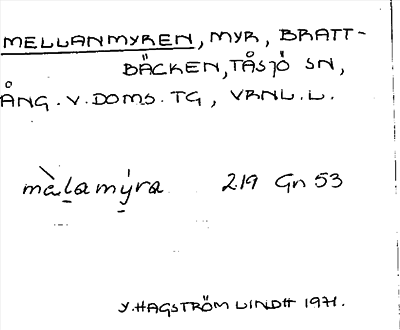 MELLANMYREN, MYR, BRATT-
BÄCKEN, TÅSJÖ SN,
ÅNG. V. DOMS. TG, VRNL. L.
màlamýra 219 Gn 53
Y. HAGSTRÖM LINDH 1971.